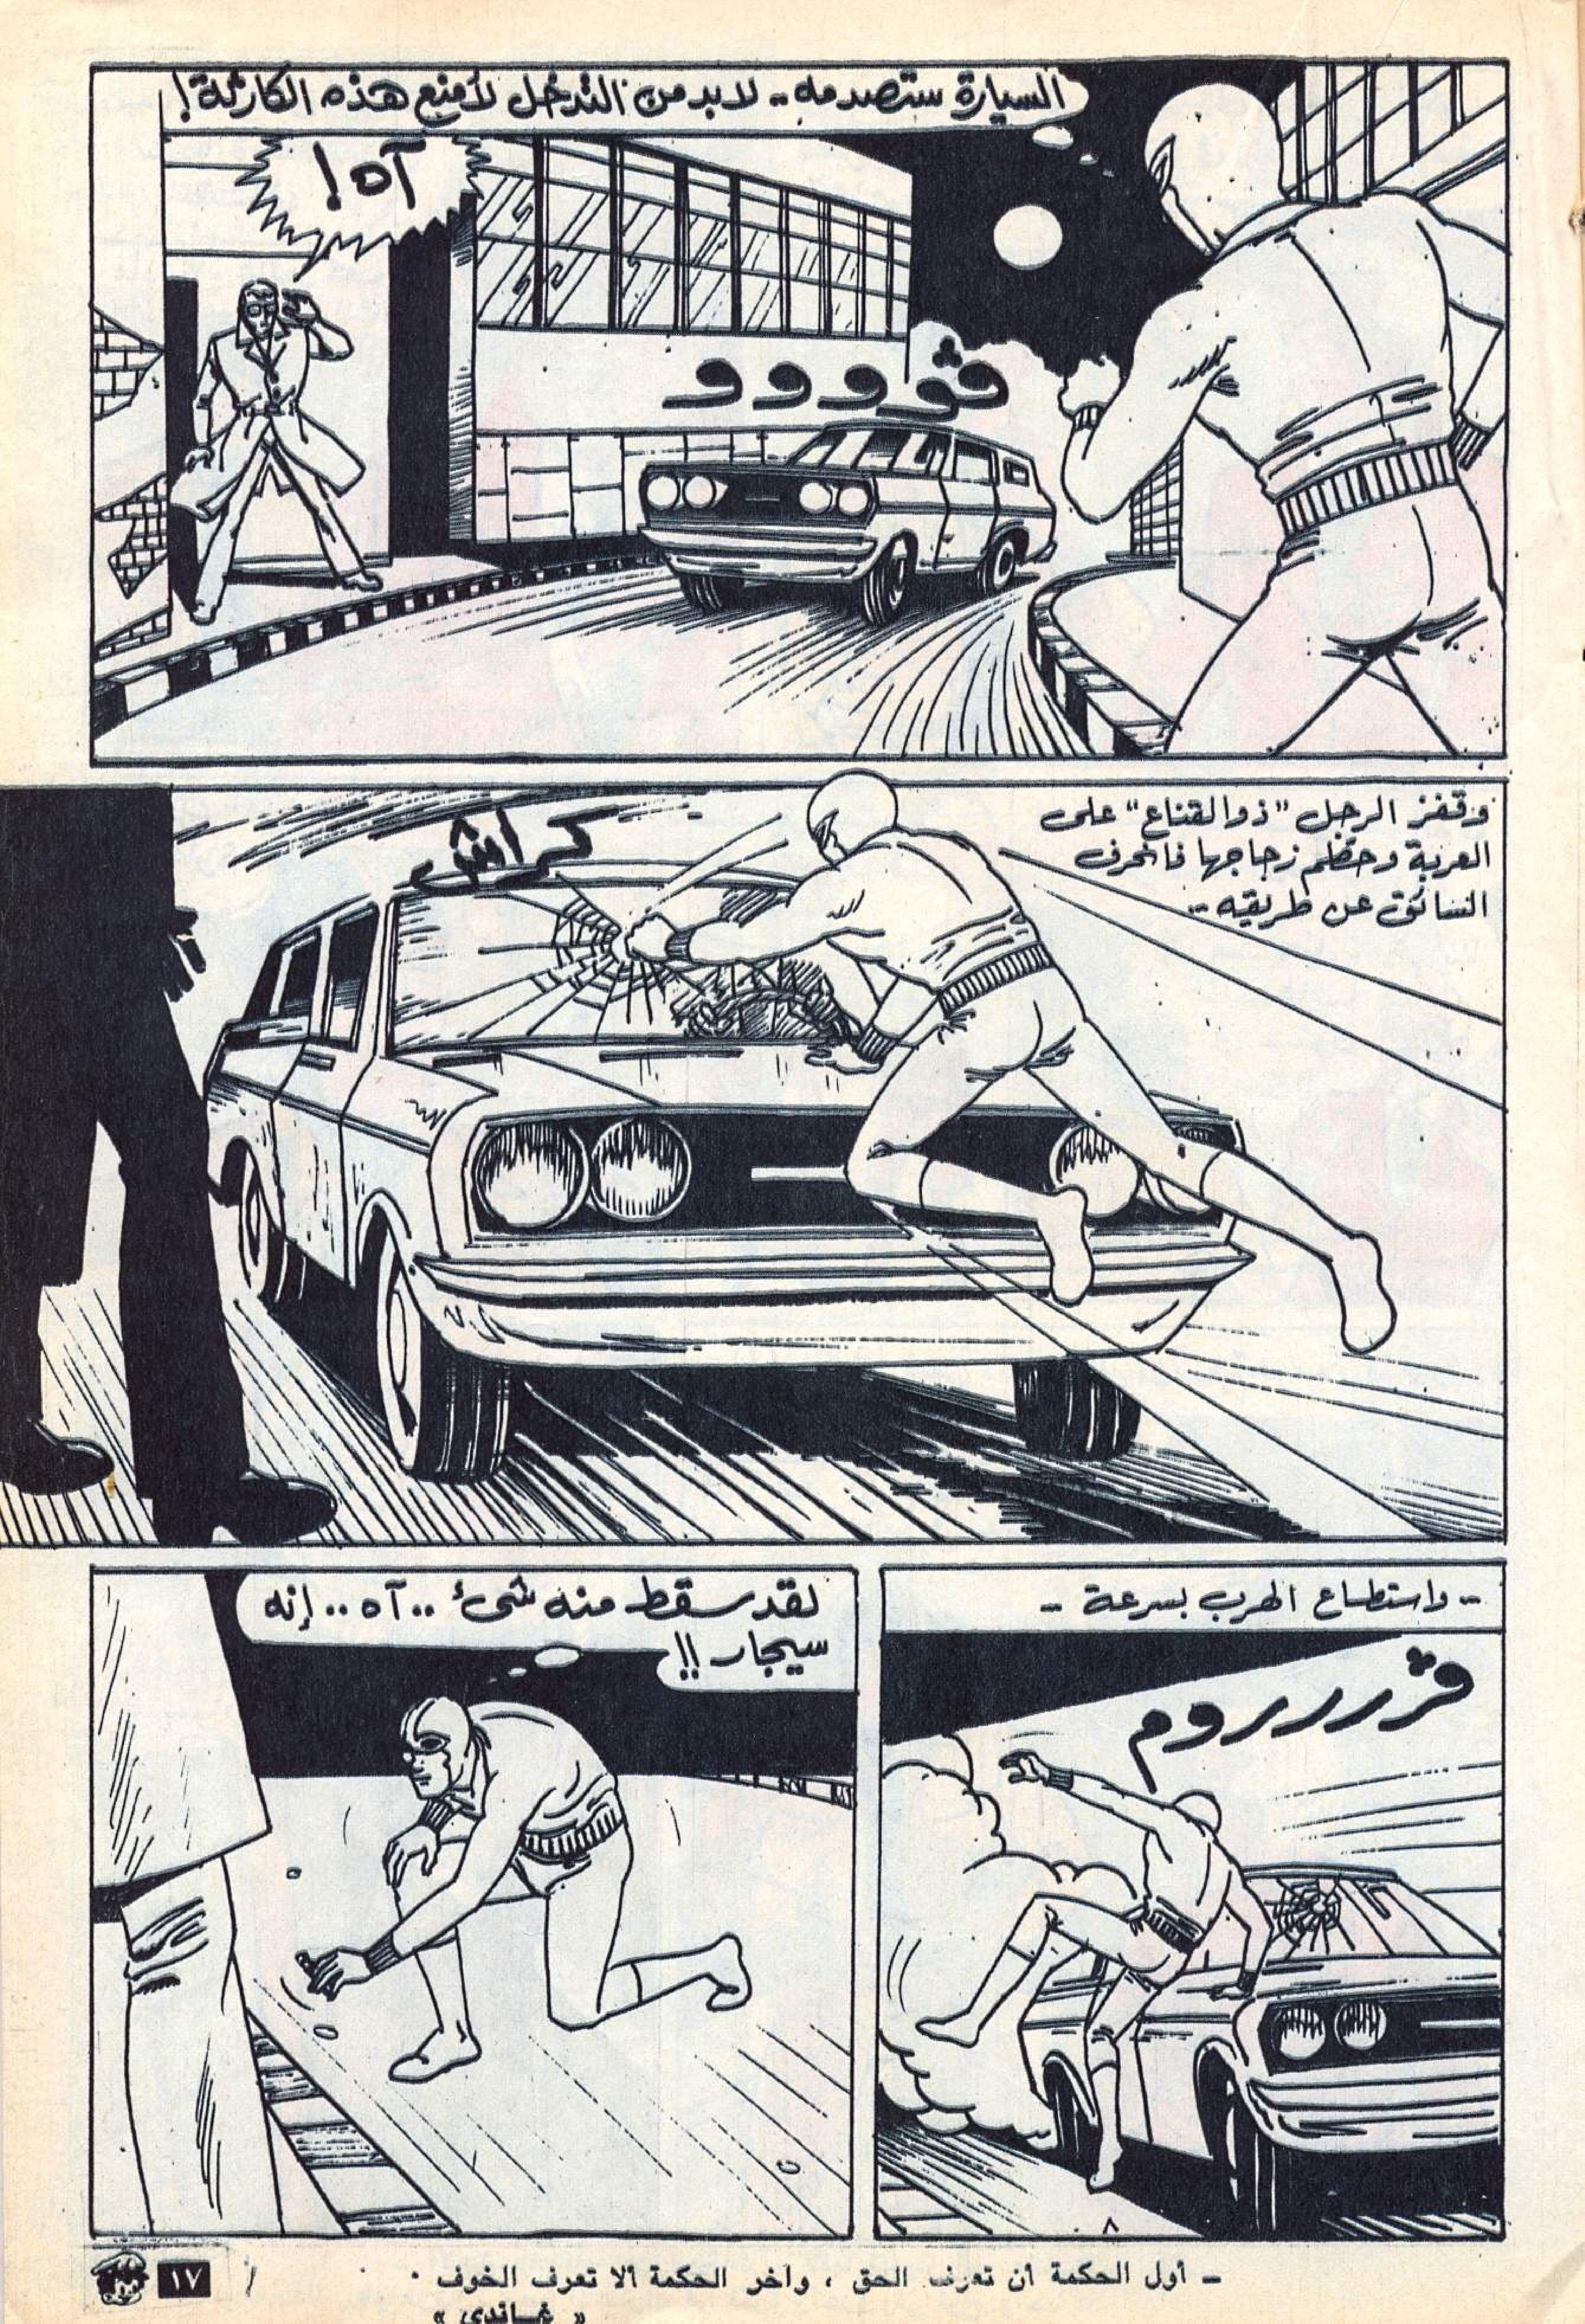 السيارة ستصدمه .. لابد من التدخل لأمنع هذه الكارثة !
آه !
ڤوووو
وقفز الرجل "ذو القناع" على
العربة وحطم زجاجها فانحرف
السائق عن طريقه ..
كراش
.. واستطاع الهرب بسرعة ..
ڤرررروم
لقد سقط منه شئ .. آه .. إنه
سيجار !!
٨
– أول الحكمة أن تعرف الحق ، وآخر الحكمة ألا تعرف الخوف .
« غاندى »
١٧